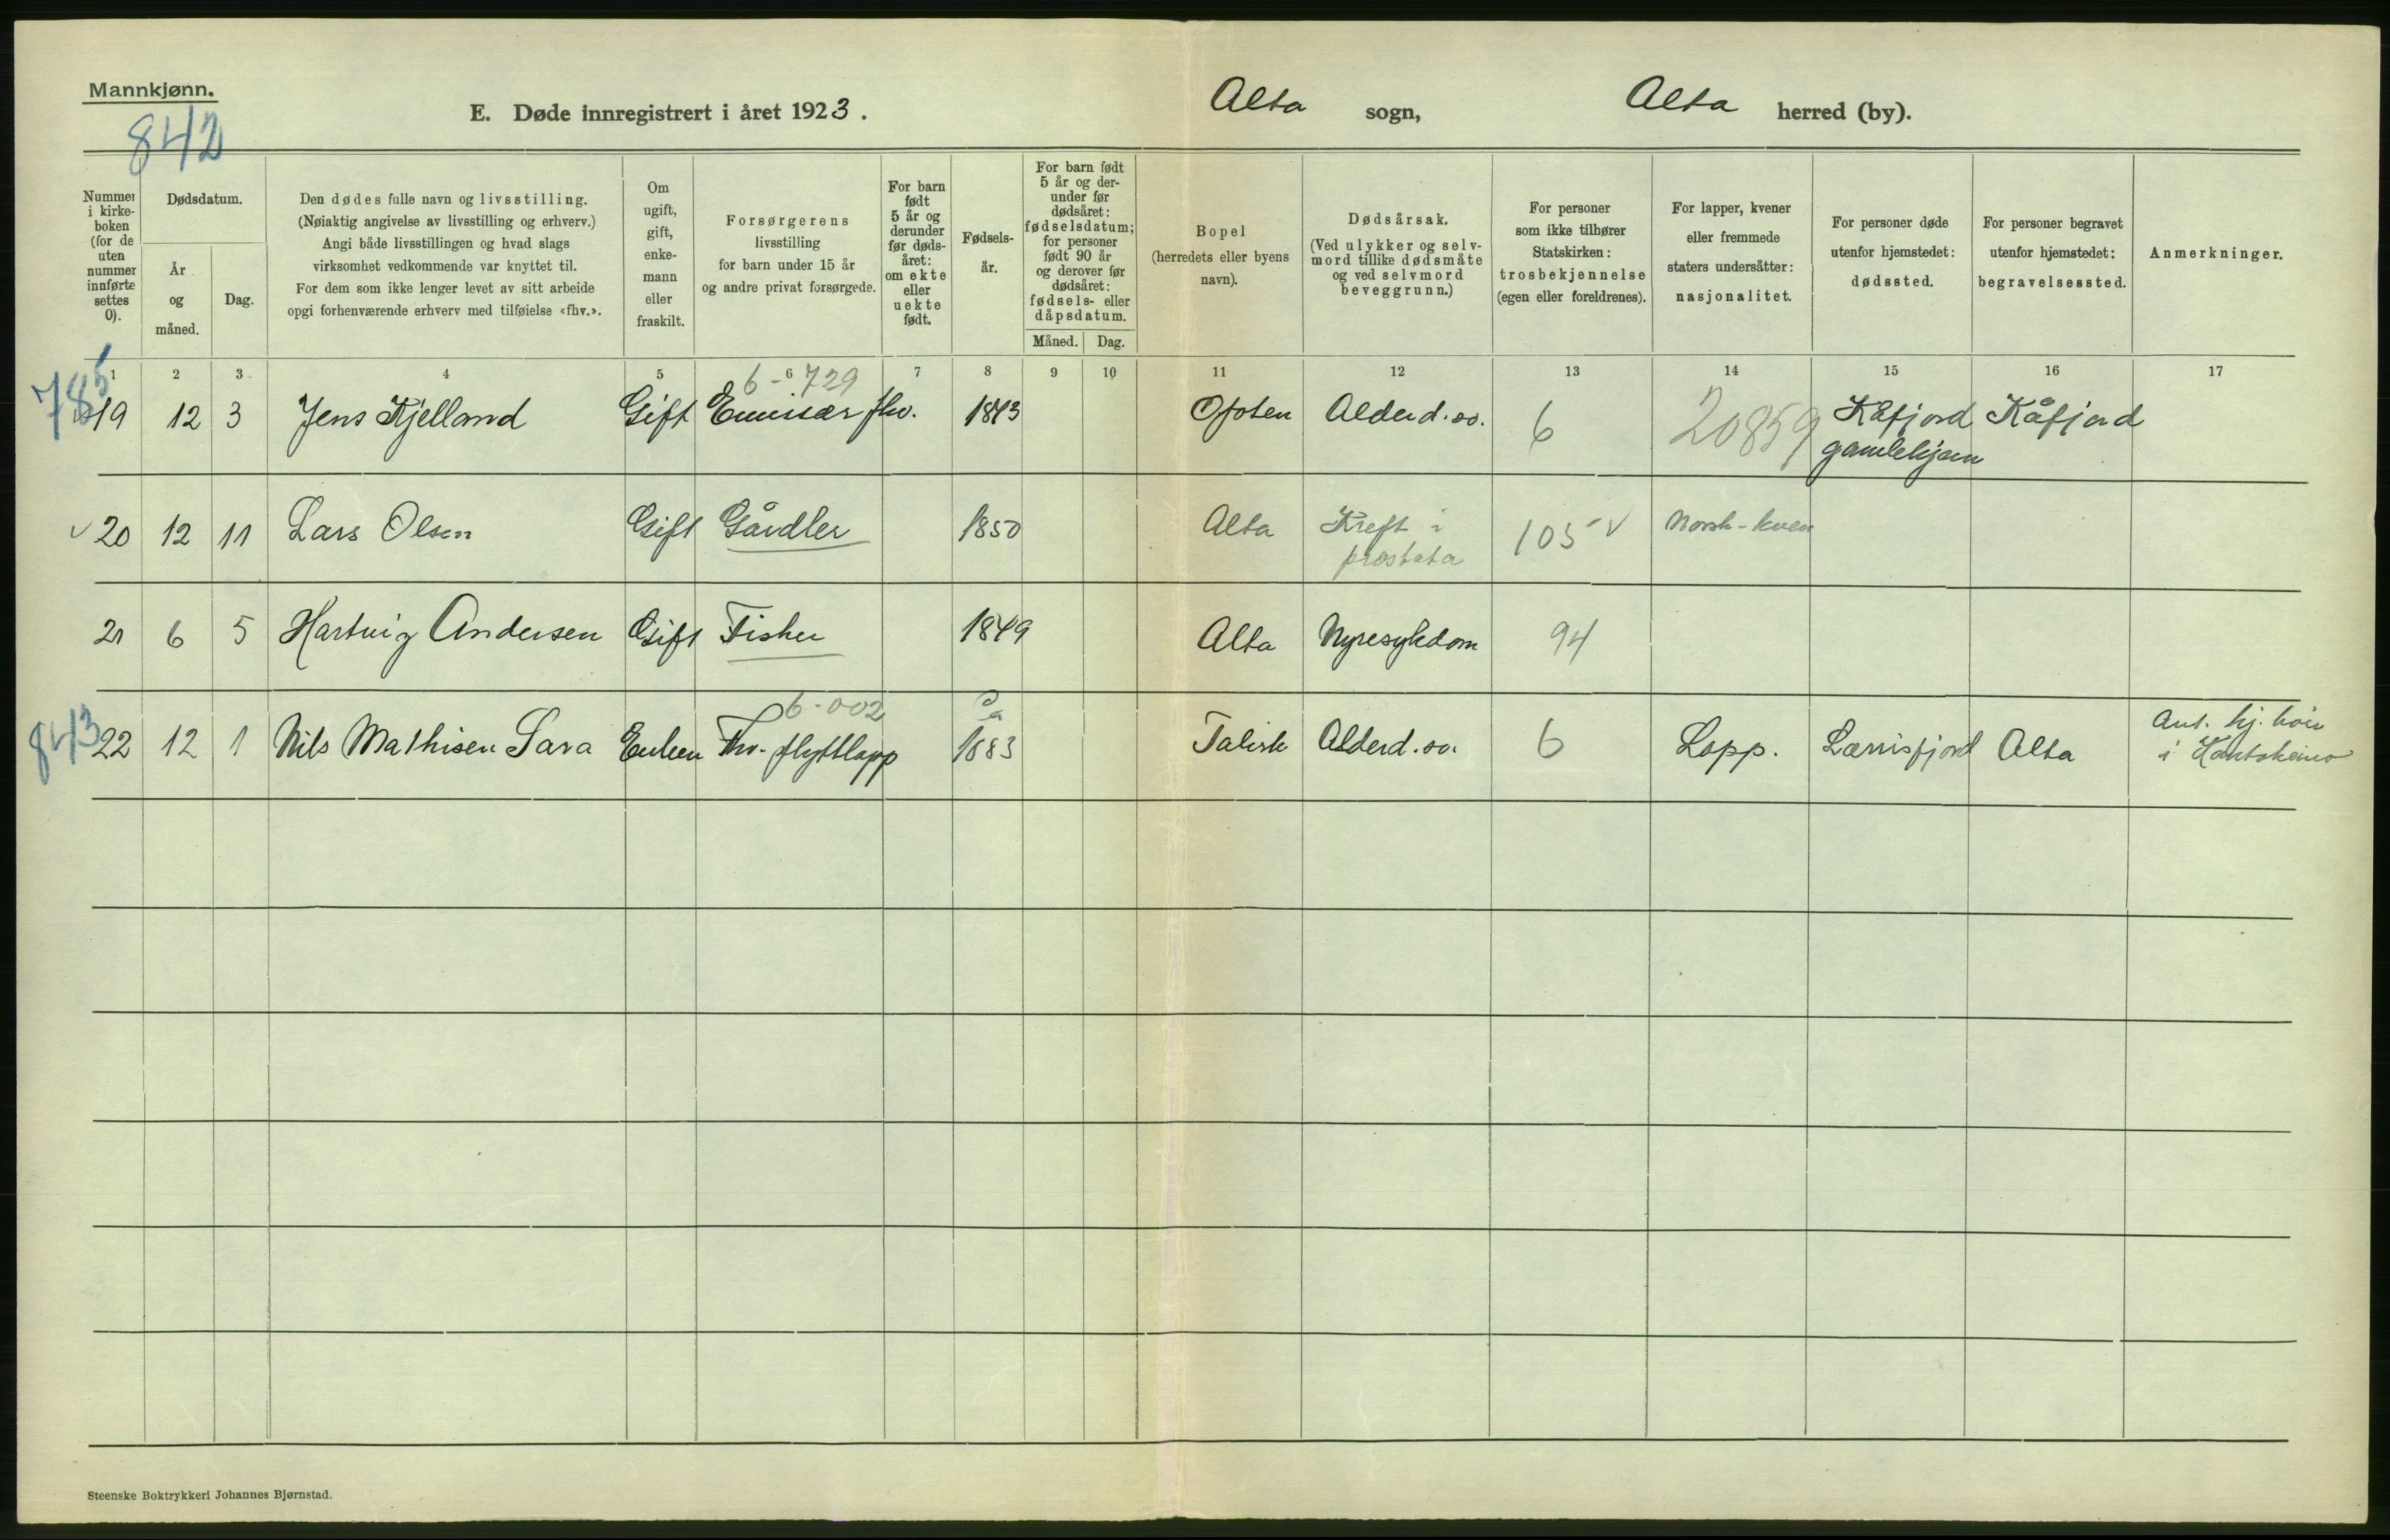 Mannkjønn.
842
E. Døde innregistrert i året 1923. Alta sogn, Alta herred (by).
Nummer i kirkeboken (for de uten nummer innførte settes 0).
Dødsdatum.
År og måned.
Dag.
Den dødes fulle navn og livsstilling.
(Nøiaktig angivelse av livsstilling og erhverv.)
Angi både livsstillingen og hvad slags
virksomhet vedkommende var knyttet til.
For dem som ikke lenger levet av sitt arbeide
opgi forhenværende erhverv med tilføielse «fhv.».
Om ugift, gift, enkemann eller fraskilt.
Forsørgerens
livsstilling
for barn under 15 år
og andre privat forsørgede.
For barn født 5 år og derunder før dødsåret: om ekte eller uekte født.
Fødselsår.
For barn født 5 år og derunder før dødsåret: fødselsdatum; for personer født 90 år og derover før dødsåret: fødsels- eller dåpsdatum.
Måned. Dag.
Bopel
(herredets eller byens
navn).
Dødsårsak.
(Ved ulykker og selvmord tillike dødsmåte
og ved selvmord
beveggrunn.)
For personer
som ikke tilhører
Statskirken:
trosbekjennelse
(egen eller foreldrenes).
For lapper, kvener
eller fremmede
staters undersåtter:
nasjonalitet.
For personer døde
utenfor hjemstedet:
dødssted.
For personer begravet
utenfor hjemstedet:
begravelsessted.
Anmerkninger.
1 2 3 4 5 6 7 8 9 10 11 12 13 14 15 16 17
785
6-729
19 12 3 Jens Kjelland Gift Emissær fhv. 1843 Ofoten Alderd.sv. 6 20859 Kåfjord Kåfjord
gamlehjem
20 12 11 Lars Olsen Gift Gårdbr 1850 Alta Kreft i 105 Norsk-kven
prostata
21 6 5 Hartvig Andersen Gift Fisker 1849 Alta Nyresykdom 94
843
6-002
22 12 1 Nils Mathisen Sara Enkem Fhv. flyttlapp 1883 Talvik Alderd.sv. 6 Lapp. Alta
i Kautokeino
Steenske Boktrykkeri Johannes Bjørnstad.